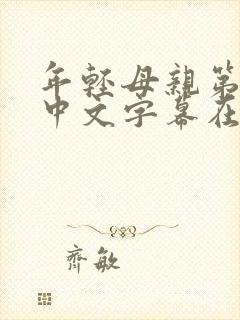 年轻母親第
中文字幕在
齊敏